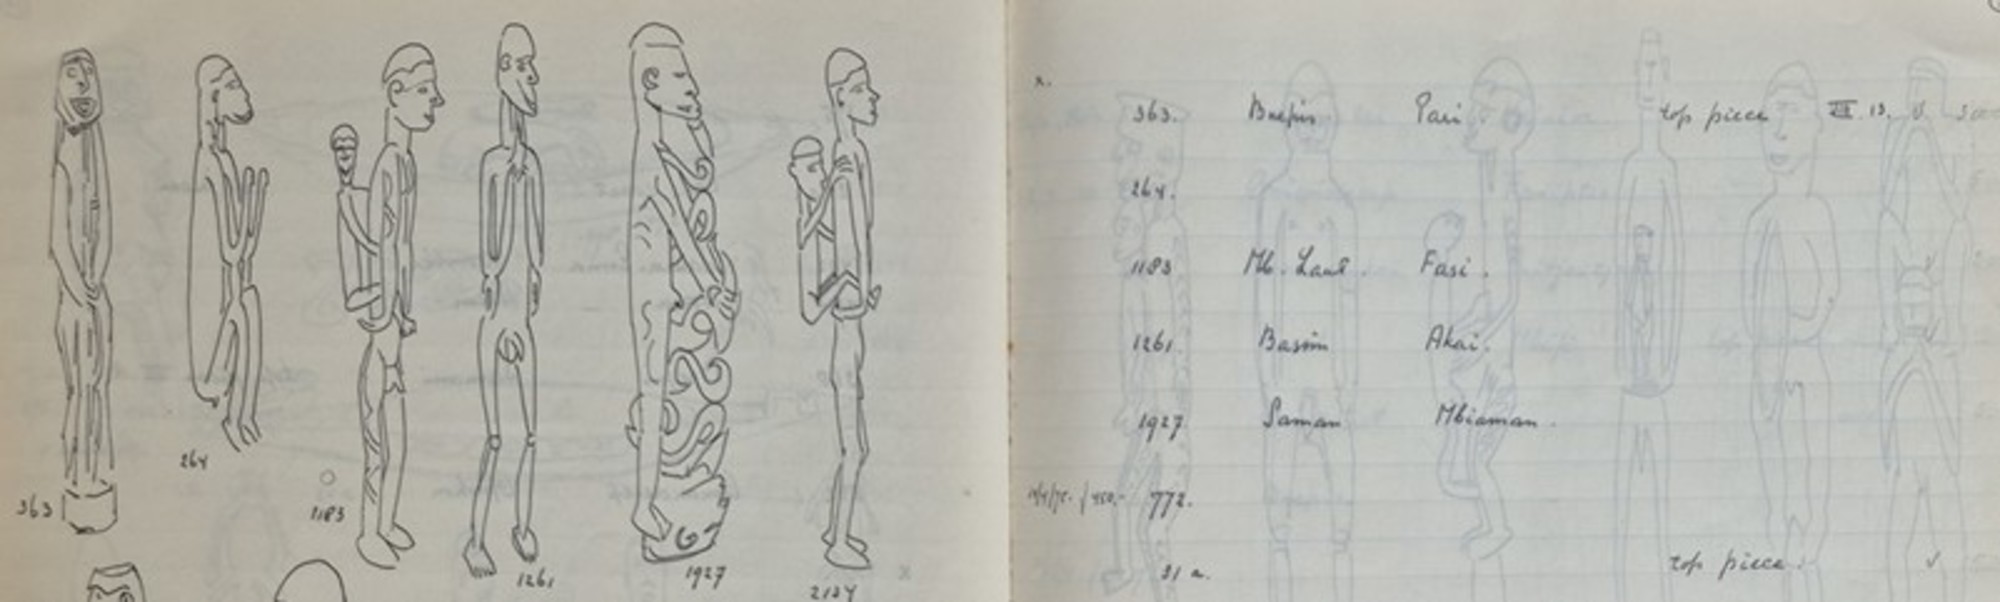 363
264
1183
1261
1927
2134
x.
363. Pari top piece III. 13. v
264.
1183 Mb. Laut Fasi.
1261. Basim Akai.
1927. Saman Mbiaman.
772.
31 a. top piece. v